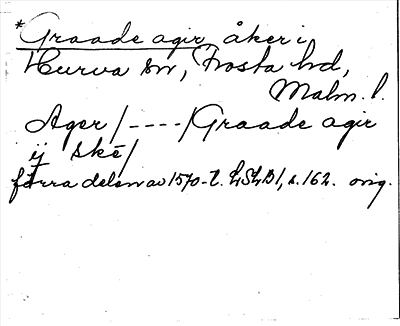 *Graade agir, åker i
Hurva sn, Frosta hd,
Malm. l.
Ager /----/ Graade agir
ij skē/
förra delen av 1570-t. LSLB1, s. 162. orig.